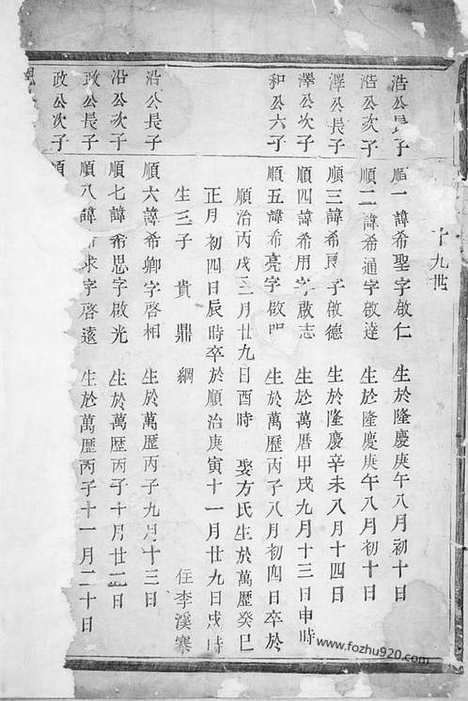 十九世
浩公長子 順一諱希聖字啟仁 生於隆慶庚午八月初十日
浩公次子 順二諱希通字啟達 生於隆慶庚午八月初十日
澤公長子 順三諱希 字啟德 生於隆慶辛未八月十四日
澤公次子 順四諱希用字啟志 生於萬曆甲戌九月十三日申時
和公六子 順五諱希亮字啟明 生於萬歷丙子八月初四日卒於
順治丙戌三月廿九日酉時 娶方氏生於萬歷癸巳
正月初四日辰時卒於順治庚寅十一月廿九日戌時
生三子 貴 鼎 綱 住李溪寨
沿公長子 順六諱希卿字啓相 生於萬歷丙子九月十三日
沿公次子 順七諱希思字啟光 生於萬歷丙子十月廿二日
政公長子 順八諱希求字啓遠 生於萬歷丙子十一月二十日
政公次子 順
www.fozhu920.com